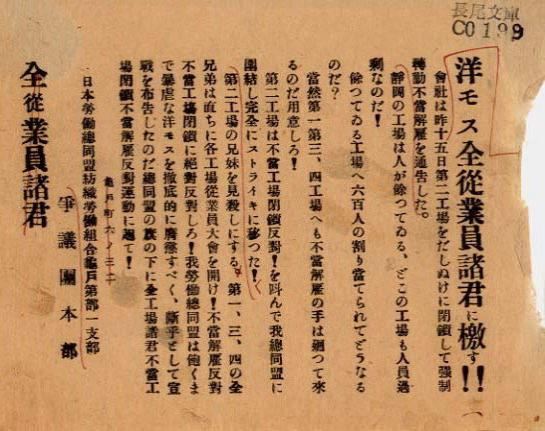 長尾文庫
C0199
洋モス全從業員諸君に檄す!!
會社は昨十五日第二工場をだしぬけに閉鎖して強制
轉勤不當解雇を通告した。
靜岡の工場は人が餘つてゐる、どこの工場も人員過
剩なのだ!
餘つてゐる工場へ六百人の割り當てられてどうなる
のだ?
當然第一第三、四工場へも不當解雇の手は廻つて來
るのだ用意しろ!
第二工場は不當工場閉鎖反對!を叫んで我總同盟に
團結し完全にストライキに移つた!
第二工場の兄妹を見殺しにするな 第一、三、四の全
兄弟は直ちに各工場從業員大會を開け!不當解雇反對
不當工場閉鎖に絶對反對しろ!我勞働總同盟は飽くま
で暴虐な洋モスを徹底的に膺懲すべく、斷乎として宣
戰を布告したのだ總同盟の旗の下に全工場諸君不當工
場閉鎖不當解雇反對運動に起て!
龜戸町六ノ三十
日本勞働總同盟紡織勞働組合龜戸第一支部
爭議團本部
全從業員諸君